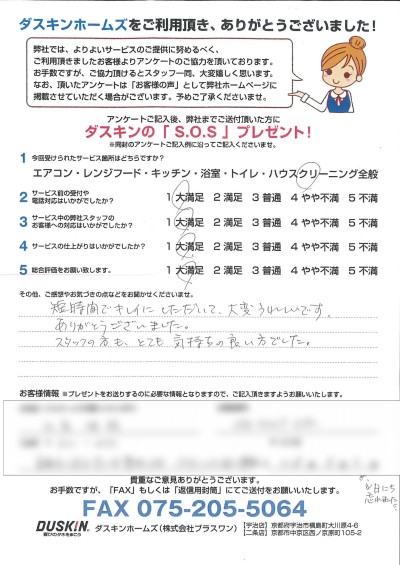 ダスキンホームズをご利用頂き、ありがとうございました!
弊社では、よりよいサービスのご提供に努めるべく、
ご利用頂きましたお客様よりアンケートのご協力を頂いております。
お手数ですが、ご協力頂けるとスタッフ一同、大変嬉しく思います。
なお、頂いたアンケートは「お客様の声」として弊社ホームページに
掲載させていただく場合がございます。予めご了承くださいませ。
アンケートご記入後、弊社までご送付頂いた方に
ダスキンの「S.O.S」プレゼント!
※同封のアンケートご記入例に沿ってご記入くださいませ。
1 今回受けられたサービス箇所はどちらですか?
エアコン・レンジフード・キッチン・浴室・トイレ・ハウスクリーニング全般
2 サービス前の受付や
電話対応はいかがでしたか? 1 大満足 2 満足 3 普通 4 やや不満 5 不満
3 サービス中の弊社スタッフの
お客様への対応はいかがでしたか? 1 大満足 2 満足 3 普通 4 やや不満 5 不満
4 サービスの仕上がりはいかがでしたか? 1 大満足 2 満足 3 普通 4 やや不満 5 不満
5 総合評価をお願い致します。 1 大満足 2 満足 3 普通 4 やや不満 5 不満
その他、ご感想やお気づきの点などをお聞かせくださいませ。
短時間でキレイにしただいて、大変うれしいです。
ありがとうございました。
スタッフの方も、とても気持ちの良い方でした。
お客様情報 ※プレゼントをお送りするのに必要な情報となりますので、ご記入頂きますようお願いいたします。
貴重なご意見ありがとうございます。
お手数ですが、「FAX」もしくは「返信用封筒」にてご送付をお願いいたします。
FAX 075-205-5064
DUSKIN
喜びのタネをまこう
ダスキンホームズ(株式会社プラスワン)
【宇治店】京都府宇治市槇島町大川原4-6
【二条店】京都市中京区西ノ京原町105-2
忘れました。